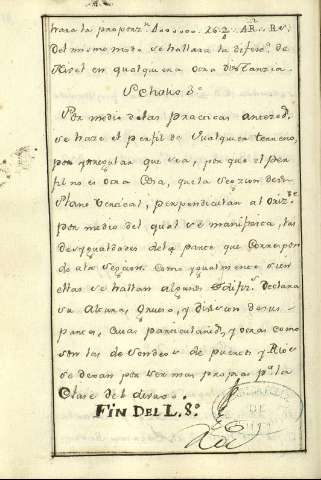 hara la proporz.n 1000000. 16.2. AR. Rs.
Del mismo modo se hallara la diferz.a de
Nivel en qualquiera otra distanzia.
Scholio 3.º
Por medio delas practicas anteced.s
se haze el perfil de qualquier terreno,
por yrregular que sea, por que el per
fil no es otra Cosa, que la Seczion deun
Plano Vertical, perpendicular al Orizte
por medio del qual se manifiesta, las
Desygualdades del parage que Correspon
de ala Seczion. Como ygualmente si en
ellas se hallan algunos Edifiz.s Declara
su Altura, Grueso, y division de sus
partes, Cuias particularid.s, y otras como
son las de Sondeos de puertos y Rios
se dexan por ser mas propias p.a la
Clase del diseño.
FIN DEL L. 8º